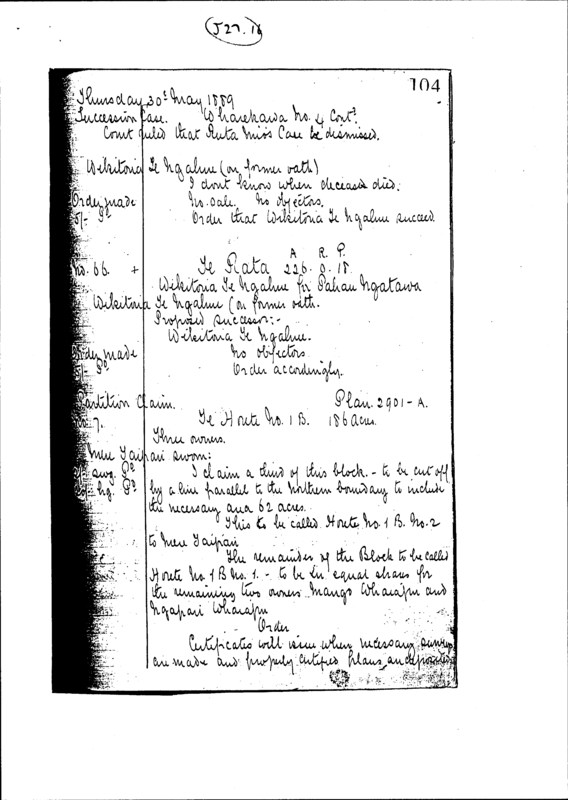 J27.18
104
Thursday 30th May 1889
Succession Case. Wharekawa No. 4 Contd.
Court ruled that Ruta Miri's Case be dismissed.
Wikitoria Te Ngahue (on former oath)
I dont know when deceased died.
Order made No sale. No objectors.
5/- Pd Order that Wikitoria Te Ngahue succeed
A. R. P.
No. 66. + Te Rata 226. 0. 18.
Wikitoria Te Ngahue for Pahau Ngatawa
Wikitoria Te Ngahue (on former oath.
Proposed successor:-
Wikitoria Te Ngahue.
Order made No objectors
5/- Pd Order accordingly.
Partition Claim. Plan 2901-A.
No. 7. Te Horete No. 1 B. 186 acres.
Three owners.
Mere Taipari sworn:
2/- swg Pd I claim a third of this block. - to be cut off
hg. Pd by a line parallel to the Northern boundary to include
the necessary area 62 acres.
This to be called Horete No. 1 B. No. 2
to Mere Taipari
The remainder of the Block to be called
Horete No. 1 B No. 1. - to be in equal shares for
the remaining two owners Mango Wharapu and
Ngapari Wharapu
Order
Certificates will issue when necessary surveys
are made and properly certified plans are deposited